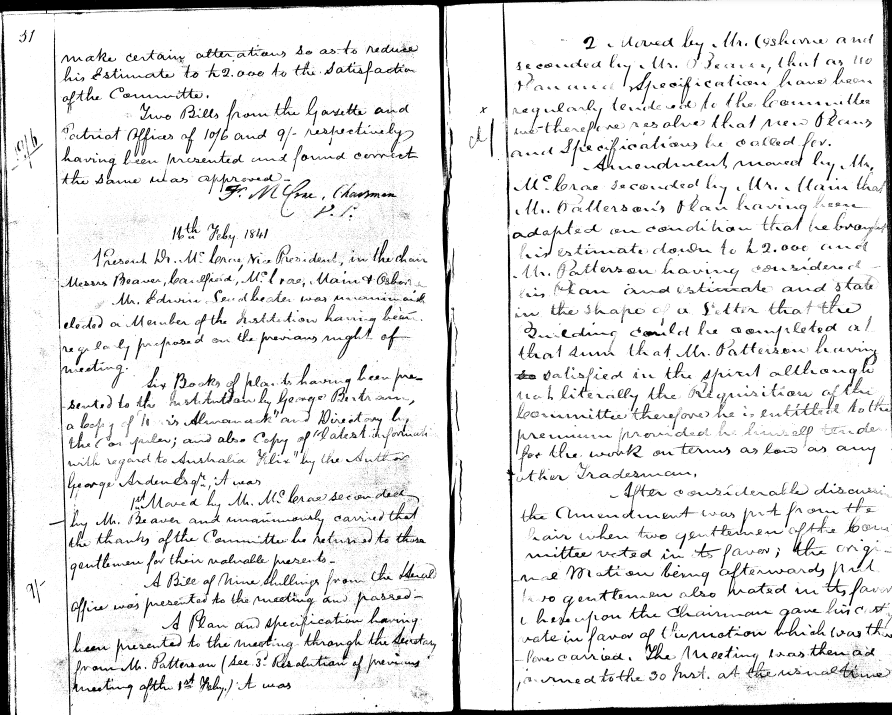 51
make certain alterations so as to reduce
his Estimate to £2.000 to the Satisfaction
of the Committee.
Two Bills from the Gazette and
Patriot Offices of 10/6 and 9/- respectively
10/6
having been presented and found correct
the same was approved -
Fr. McCrae, Chairman
V.P.
16th Feby 1841
Present Dr. McCrae, Vice President, in the chair
Messrs Beaver, Caulfield, McCrae, Main & Osborne
Mr. Edwin Leadbeater was unanimously
elected a Member of the Institution having been
regularly proposed on the previous night of
meeting.
Six Books of plants having been pre-
sented to the Institution by George Bertram,
a Copy of Almanack" and Directory by
the Compiler; and also Copy of "latest information
with regard to Australia Felix" by the Author
George Arden Esqr., it was
1st Moved by Mr. McCrae seconded
by Mr. Beaver and unanimously carried that
the thanks of the Committee be returned to those
gentlemen for their valuable presents -
A Bill of Nine Shillings from the Herald
9/-
office was presented to the meeting and passed -
A Plan and specification having
been presented to the meeting through the Secretary
from Mr. Patterson (See 3d Resolution of previous
meeting of the 1st Feby.) it was
2 Moved by Mr. Osborne and
seconded by Mr. Beaver, that as no
Plan and Specification have been
regularly tendered to the Committee
we therefore resolve that new Plans
and Specifications be called for.
Amendment moved by Mr.
McCrae seconded by Mr. Main that
Mr. Patterson's Plan having been
adopted on condition that he brought
his estimate down to £2.000 and
Mr. Patterson having considered
his Plan and estimate and state
in the shape of a Letter that the
Building could be completed at
that sum that Mr. Patterson having
so satisfied in the spirit although
not literally the Requisition of the
Committee therefore he is entitled to the
premium provided he himself tender
for the work on terms as low as any
other Tradesman.
After considerable discussion
the Amendment was put from the
hair when two gentlemen of the Com
mittee voted in its favor; the origi-
nal Motion being afterwards put
two gentlemen also voted in its favor
whereupon the Chairman gave his cast
vote in favor of the motion which was there
fore carried. The Meeting was then ad
journed to the 30 Inst. at the usual time